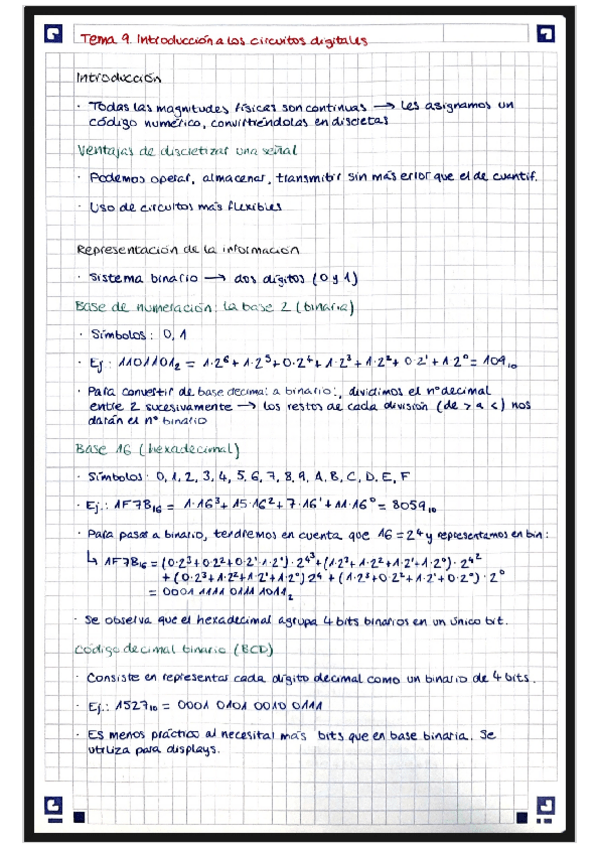 Tema 9. Introducción a los circuitos digitales
Introducción
· Todas las magnitudes físicas son continuas → les asignamos un
código numérico, convirtiéndolas en discretas
Ventajas de discretizar una señal
· Podemos operar, almacenar, transmitir sin más error que el de cuantif.
· Uso de circuitos más flexibles
Representación de la información
· Sistema binario → dos dígitos (0 y 1)
Base de numeración: la base 2 (binaria)
· Símbolos: 0, 1
· Ej: 1101101₂ = 1·2⁶ + 1·2⁵ + 0·2⁴ + 1·2³ + 1·2² + 0·2¹ + 1·2⁰ = 109₁₀
· Para convertir de base decimal a binario:, dividimos el nº decimal
entre 2 sucesivamente → los restos de cada división (de > a <) nos
darán el nº binario
Base 16 (hexadecimal)
· Símbolos: 0, 1, 2, 3, 4, 5, 6, 7, 8, 9, A, B, C, D, E, F
· Ej.: 1F7B₁₆ = 1·16³ + 15·16² + 7·16¹ + 11·16⁰ = 8059₁₀
· Para pasar a binario, tendremos en cuenta que 16 = 2⁴ y representamos en bin:
↳ 1F7B₁₆ = (0·2³ + 0·2² + 0·2¹ + 1·2⁰) · 2^4^3 + (1·2³ + 1·2² + 1·2¹ + 1·2⁰) · 2^4^2
+ (0·2³ + 1·2² + 1·2¹ + 1·2⁰) 2⁴ + (1·2³ + 0·2² + 1·2¹ + 1·2⁰) · 2⁰
= 0001 1111 0111 1011₂
· Se observa que el hexadecimal agrupa 4 bits binarios en un único bit.
Código decimal binario (BCD)
· Consiste en representar cada dígito decimal como un binario de 4 bits.
· Ej.: 1527₁₀ = 0001 0101 0010 0111
· Es menos práctico al necesitar más bits que en base binaria. Se
utiliza para displays.